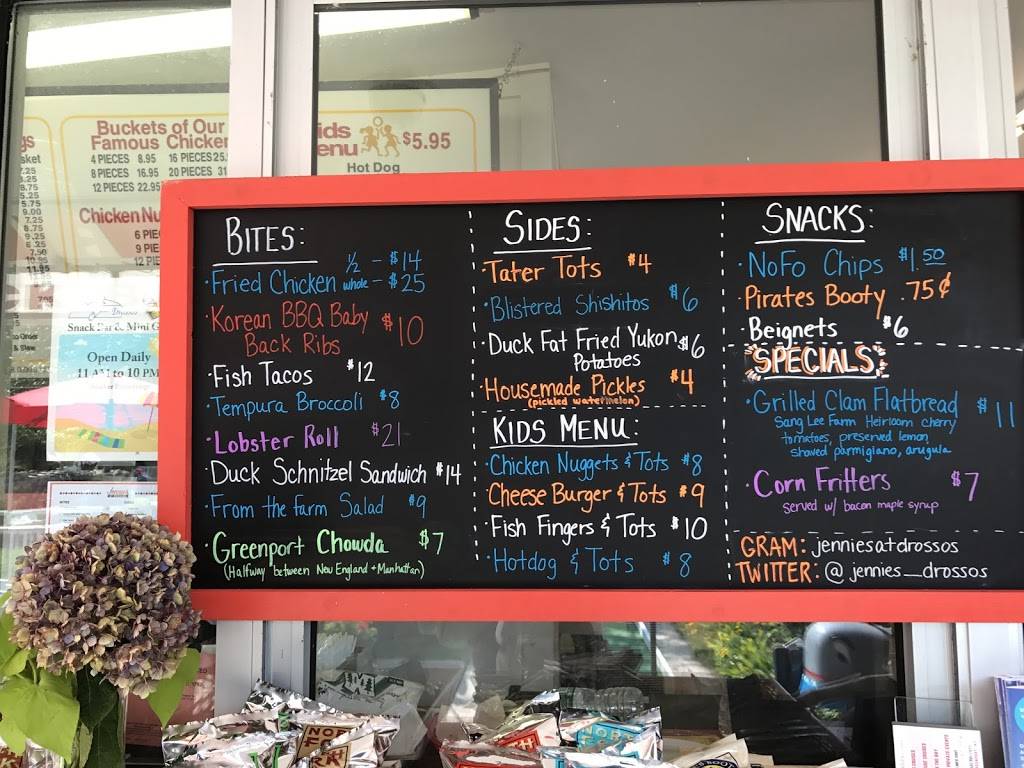 Buckets of Our
Famous Chicken
4 PIECES 8.95 16 PIECES 25.
8 PIECES 16.95 20 PIECES 31
12 PIECES 22.95
Chicken Nu
6 PIE
9 PIE
12 PIE
ids
enu $5.95
Hot Dog
sket
7.25
8.75
9.25
6.25
7.50
10.95
11.95
Snack Bar & Mini G
Open Daily
11 AM to 10 PM
BITES:
·Fried Chicken ½ - $14
whole - $25
·Korean BBQ Baby
Back Ribs $10
·Fish Tacos $12
·Tempura Broccoli $8
·Lobster Roll $21
·Duck Schnitzel Sandwich $14
·From the farm Salad $9
·Greenport Chowda $7
(Halfway between New England + Manhattan)
SIDES:
·Tater Tots $4
·Blistered Shishitos $6
·Duck Fat Fried Yukon
Potatoes $6
·Housemade Pickles $4
(pickled watermelon)
KIDS MENU:
·Chicken Nuggets & Tots $8
·Cheese Burger & Tots $9
·Fish Fingers & Tots $10
·Hotdog & Tots $8
SNACKS:
·NoFo Chips $1.50
·Pirates Booty .75¢
·Beignets $6
SPECIALS
·Grilled Clam Flatbread $11
Sang Lee Farm Heirloom cherry
tomatoes, preserved lemon,
shaved parmigiano, arugula
·Corn Fritters $7
served w/ bacon maple syrup
GRAM: jenniesatdrossos
TWITTER: @jennies_drossos